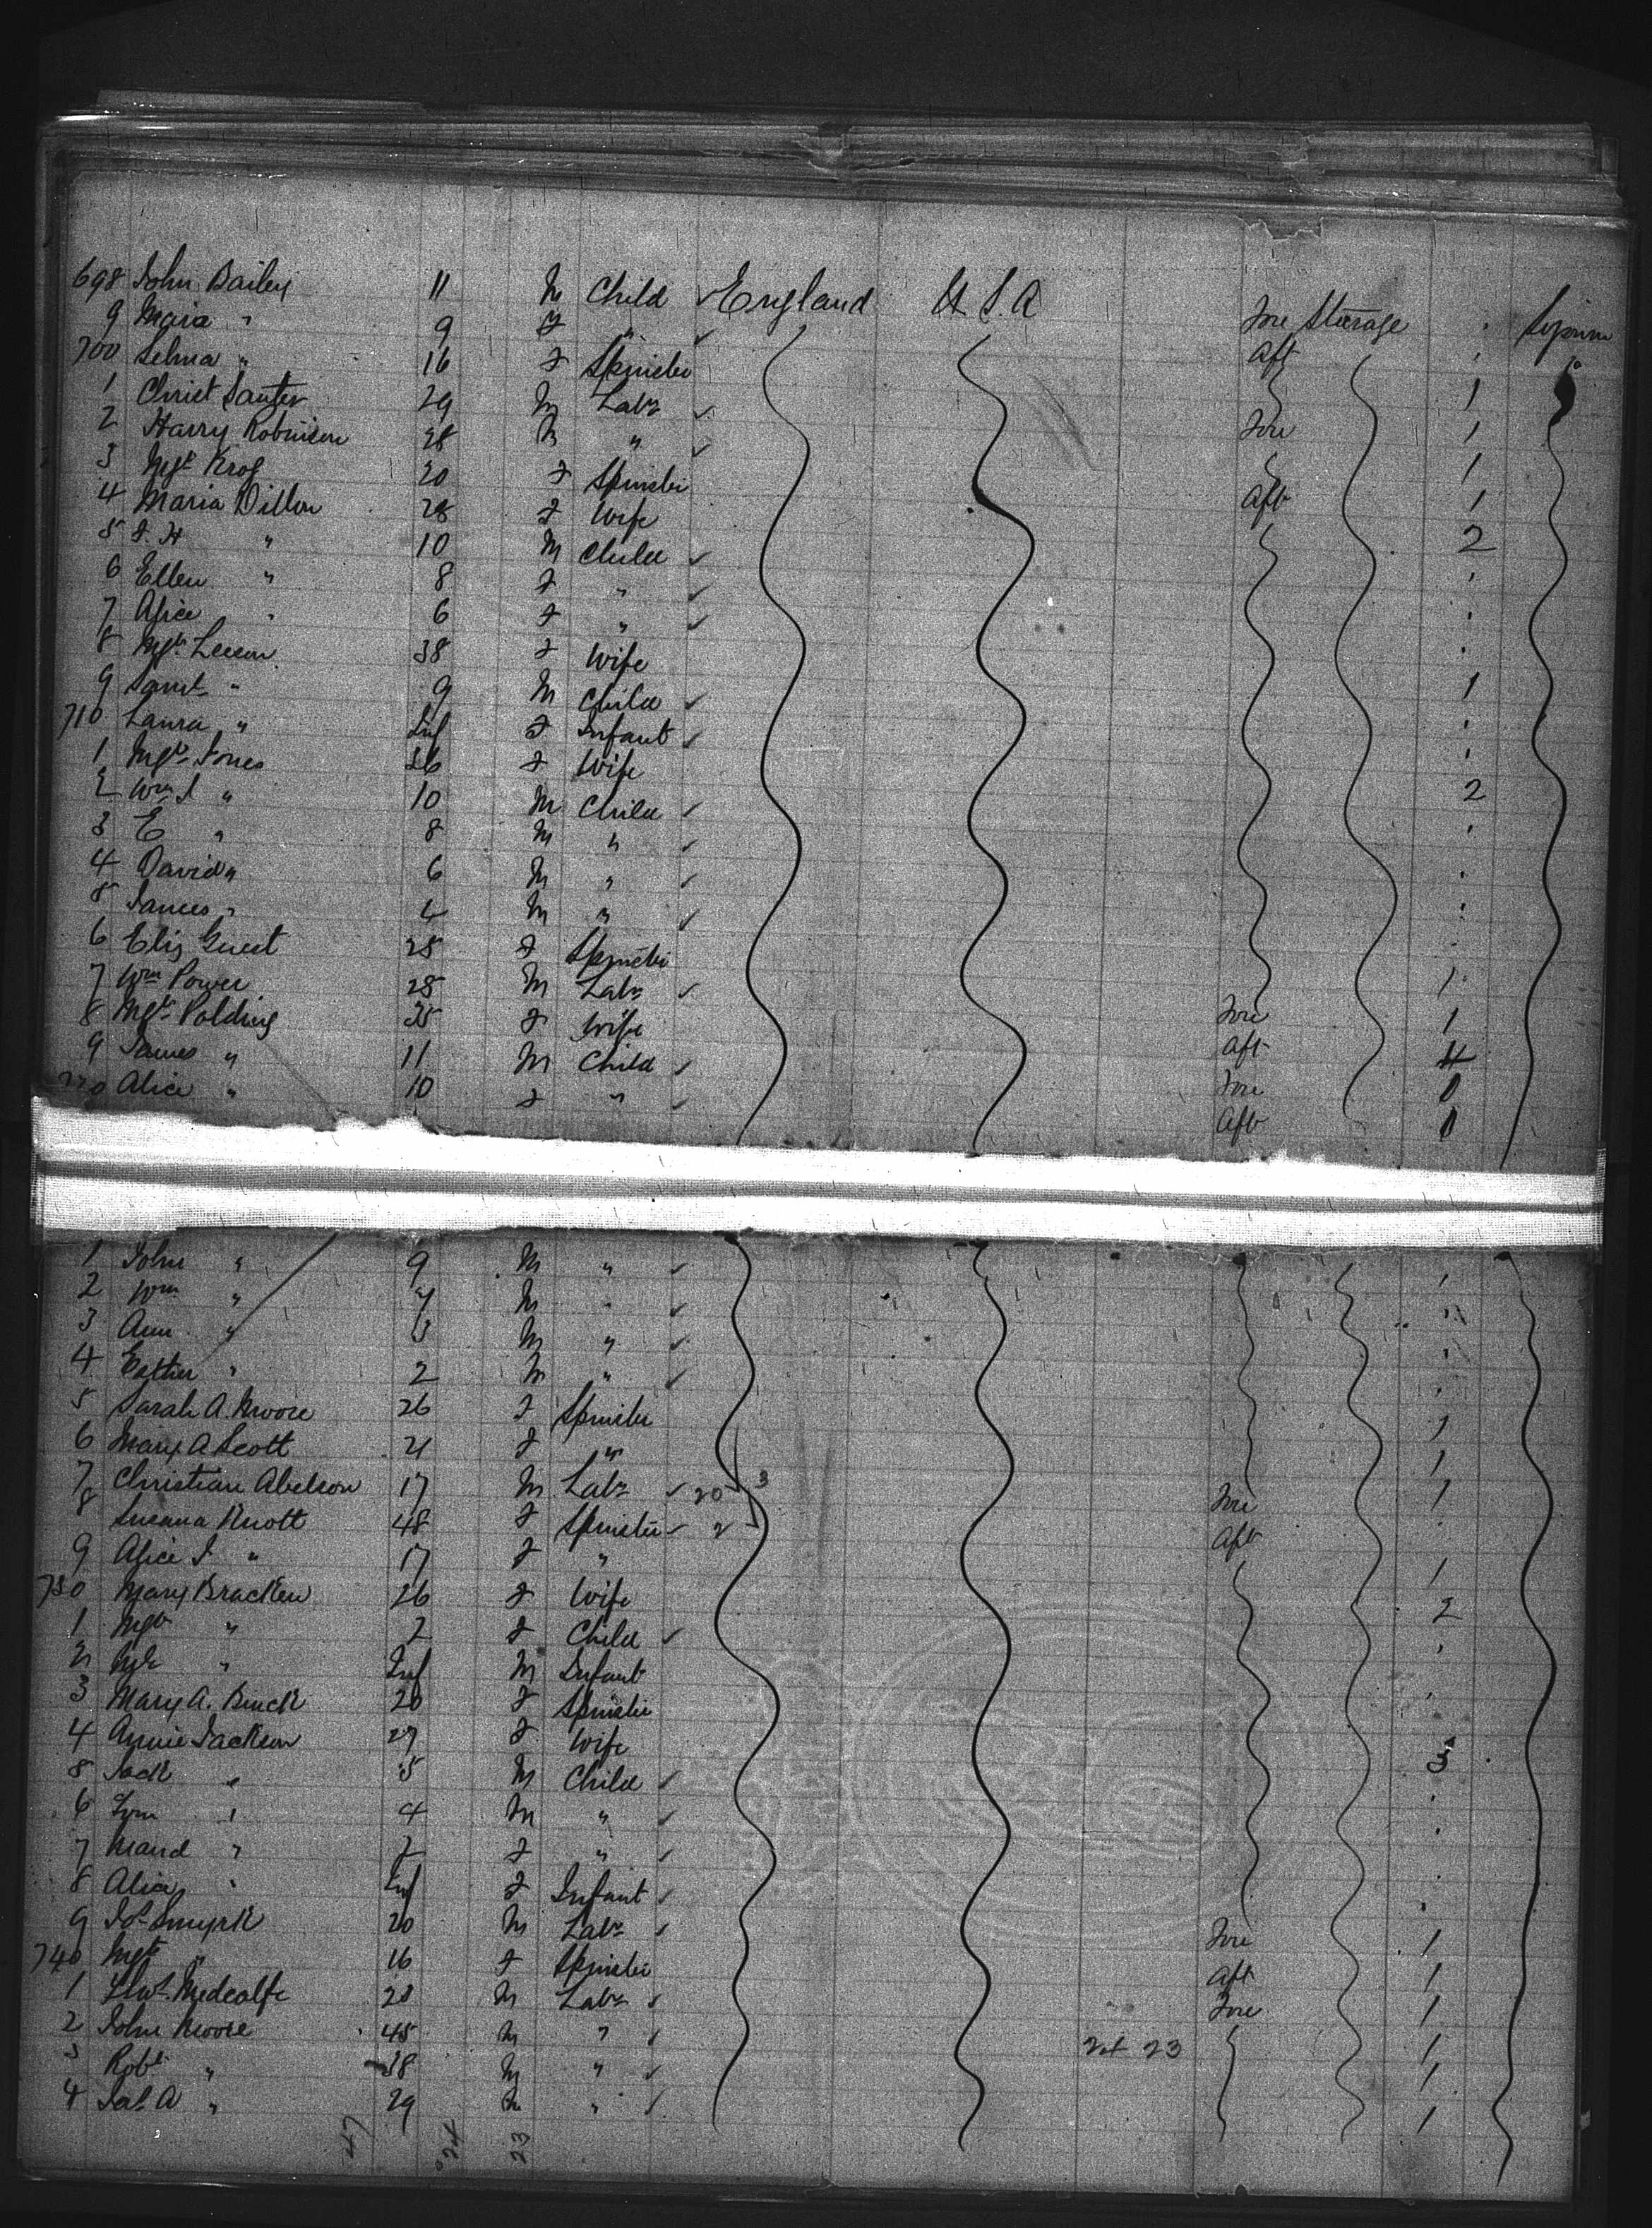 698 John Bailey 11 M Child ✓ England U.S.A Fore Steerage
9 Maria " 9 F " ✓ Aft
700 Selma " 16 F Spinster 1
1 Christ Sauter 29 M Labr ✓ Fore 1
2 Harry Robinson 28 M " ✓ 1
3 Mgt Krog 20 F Spinster Aft 1
4 Maria Dillon 28 F Wife 2
5 J. H " 10 M Child ✓
6 Ellen " 8 F " ✓
7 Alice " 6 F " ✓
8 Mgt Leeson 38 F Wife 1
9 Saml " 9 M Child ✓
710 Laura " Inf F Infant ✓
1 Mgt Jones 26 F Wife 2
2 Wm J " 10 M Child ✓
3 E " 8 M " ✓
4 David " 6 M " ✓
5 James " 4 M " ✓
6 Eliz Guest 25 F Spinster 1
7 Wm Power 28 M Labr ✓ Fore 1
8 Mgt Polding 35 F Wife Aft 4
9 James " 11 M Child ✓ Fore
720 Alice " 10 F " ✓ Aft
1 John " 9 M " ✓
2 Wm " 7 M " ✓
3 Ann " 3 M " ✓
4 Esther " 2 M " ✓
5 Sarah A. Moore 26 F Spinster 1
6 Mary A Scott 21 F " 1
7 Christian Abelson 17 M Labr ✓ 20 3 Fore 1
8 Susana Knott 48 F Spinster ✓ 2 Aft
9 Alice J " 17 F " 1
730 Mary Bracken 26 F Wife 2
1 Mgt " 2 F Child ✓
2 " Inf M Infant
3 Mary A. 20 F Spinster
4 Annie Jackson 27 F Wife 3
5 Jack " 5 M Child ✓
6 Tom " 4 M " ✓
7 Maud " 2 F " ✓
8 Alice " Inf F Infant ✓
9 Jos Smyrk 20 M Labr ✓ Fore 1
740 Mgt " 16 F Spinster Aft 1
1 Medcalfe 20 M Labr ✓ Fore 1
2 John Moore 45 M " ✓ 24 23 1
3 Robt " 38 M " ✓ 1
4 Jas A " 29 M " ✓ 1
47 24 23